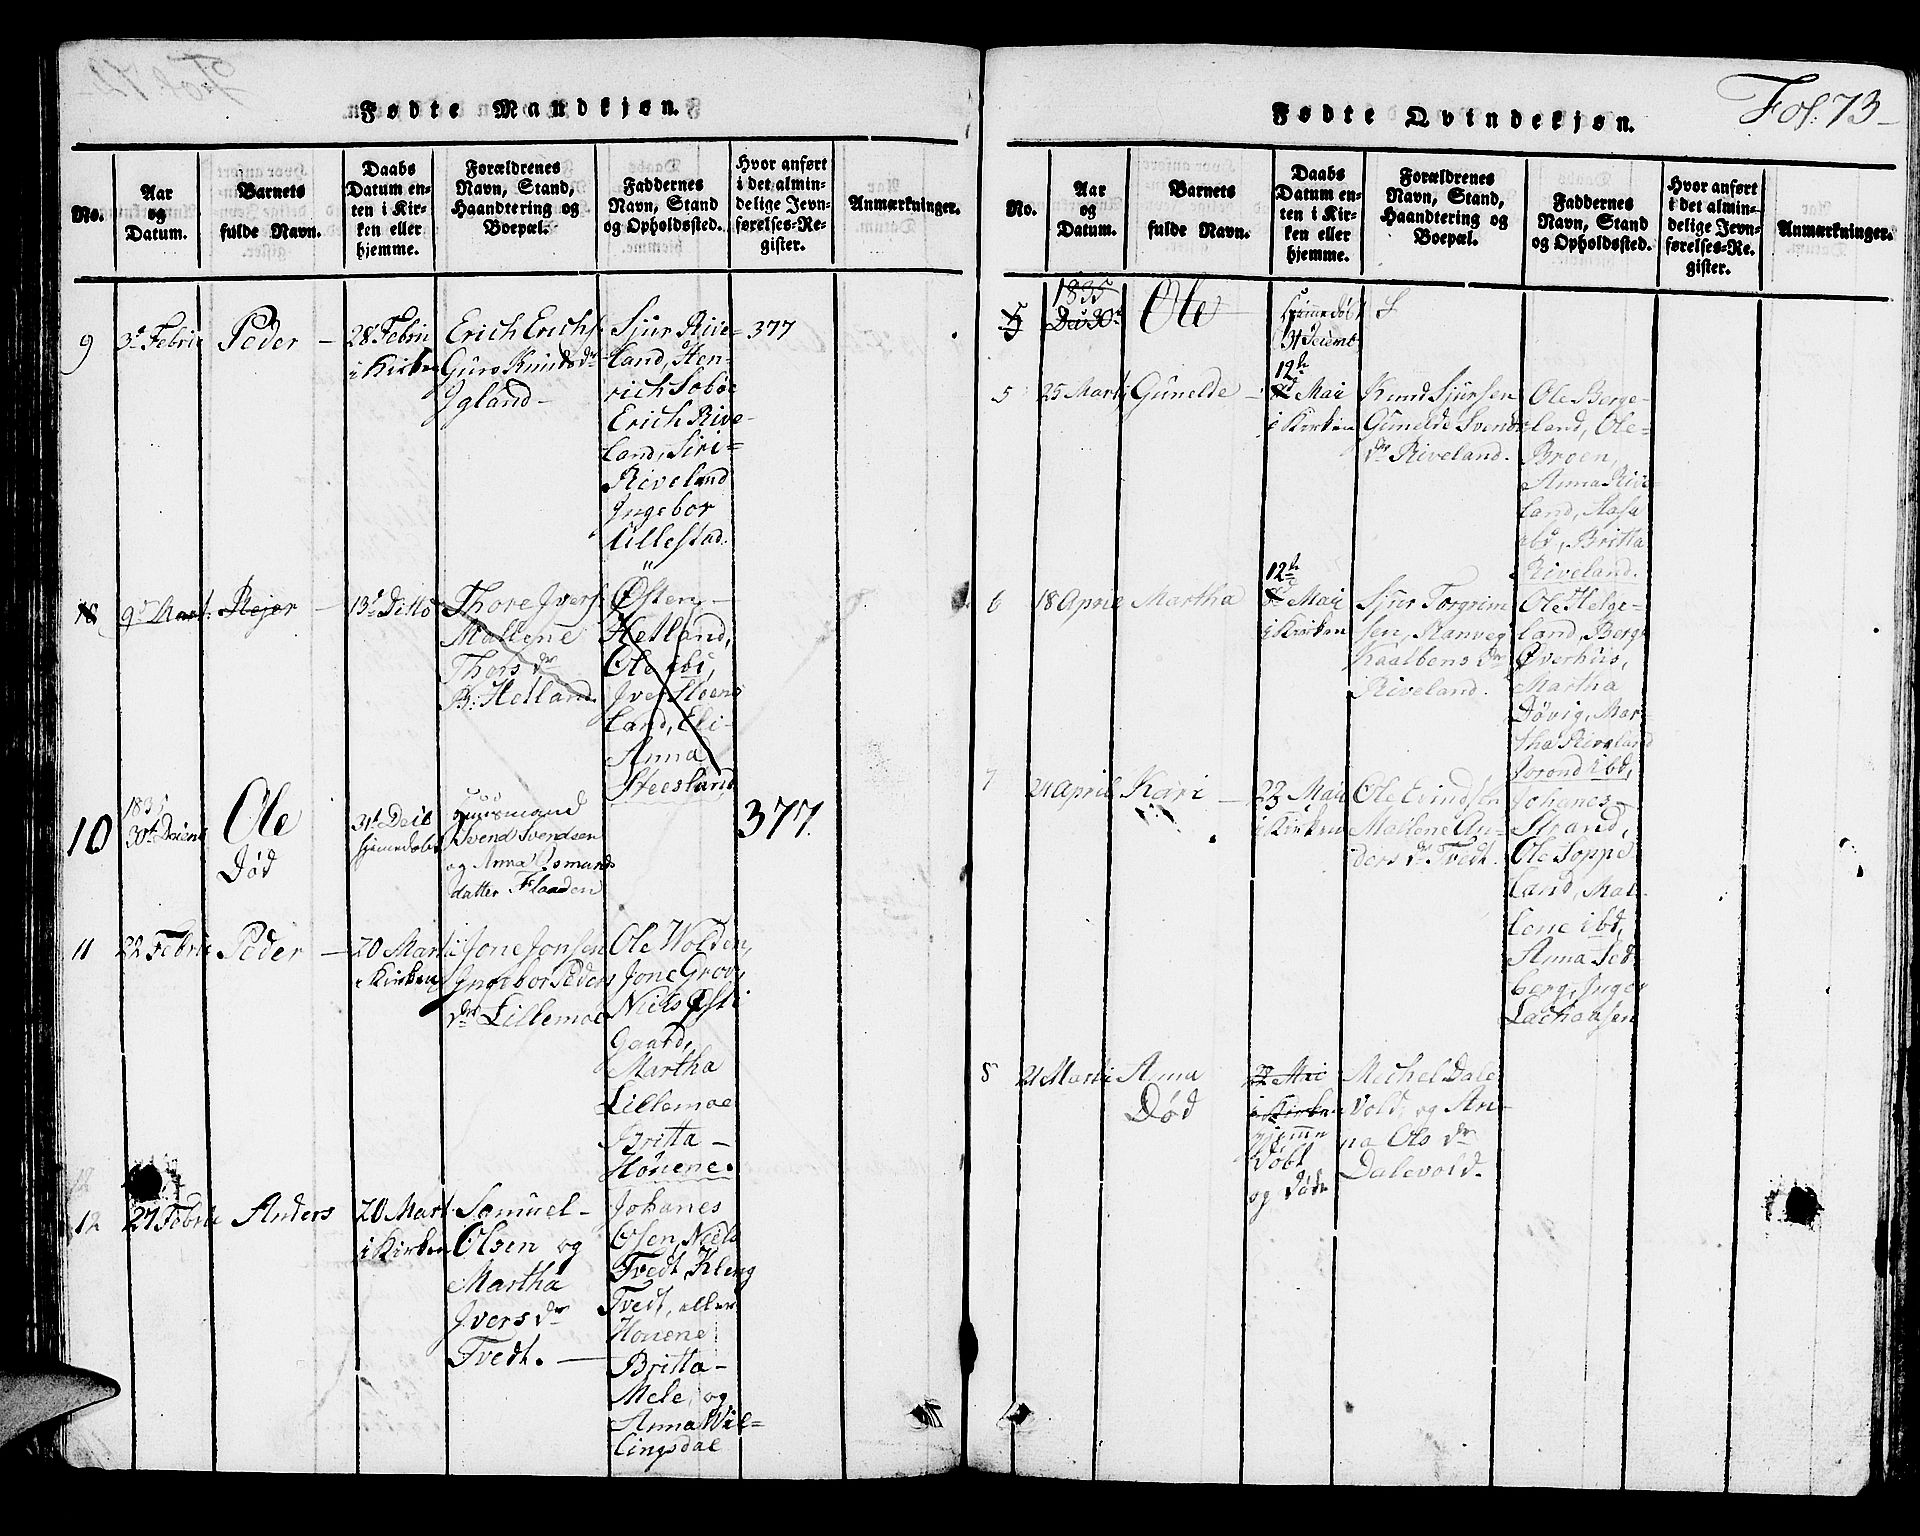 Fødte Mandkjøn.
No.
Aar
og
Datum.
Barnets
fulde Navn.
Daabs
Datum en-
ten i Kir-
ken eller
hjemme.
Forældrenes
Navn, Stand,
Haandtering og
Boepæl.
Faddernes
Navn, Stand
og Opholdssted.
Hvor anført
i det almin-
delige Jevn-
førelses-Re-
gister.
Anmærkninger.
9
3d Febrii
Peder
28d Febrii
i Kirken
Erich Erichs
Guro Knuds dr
Igland
Sjur Rive-
land, Hen-
rich Sobøe
Erich Rive-
land, Siri
Riveland
Ingebor
Lillestad.
377
10
9d Marti
Rejer
13d Ditto
Thore Ivers
Mallene
Thors dr
B: Helland
Østen
Helland,
Ole ibi,
Iver Steens
land, Eli
Anna
Steesland
10
183
30d Deiemb
Ole
Død
31d Deib
hjemedøbt
Huusmand
Svend Svendsen
og Anna Osmunds
datter Flaaden
377.
11
22 Febrii
Peder
20 Marti
i Kirken
Jone Jonsen
Ingebor Peders
dr Lillemoe
Ole Wolden,
Jone Grov,
Niels Østi
Gaard,
Martha
Lillemoe
Britta
Houene.
12
27 Febrii
Anders
20 Marti
i Kirken
Samuel
Olsen og
Martha
Ivers dr
Tvedt.
Johanes
Olsen, Niels
Tvedt, Kleng
Tvedt, ellen
Houene
Britta
Mele, og
Anna Wil-
lingsdal
Fol. 73
Fødte Qvindekjøn.
No.
Aar
og
Datum.
Barnets
fulde Navn.
Daabs
Datum en-
ten i Kir-
ken eller
hjemme.
Forældrenes
Navn, Stand,
Haandtering og
Boepæl.
Faddernes
Navn, Stand
og Opholdssted.
Hvor anført
i det almin-
delige Jevn-
førelses-Re-
gister.
Anmærkninger.
5
1835
Dec 30d
Ole
Hjemmedøbt
31 Deiemb
S
5
25 Marti
Gunelde
12te
Mai
i Kirken
Knud Sjursen
Gunelde Svends
dr Riveland.
Ole Berge-
land, Ole
Broen,
Anna Rive
land, Aasa
ibi, Britta
Riveland.
6
18 April
Martha
12te
Mai
i Kirken
Sjur Torgrim
sen, Ranveg
Kaalbens dr
Riveland.
Ole Helge-
land, Berge
Øverhus,
Martha
Døvig, Mar-
tha Riveland
Jorond ibd,
7
21 April
Kari
23 Mai
i Kirken
Ole Evindsen
Mallene An-
ders dr Tvedt.
Johanes
Strand,
Ole Soppe
land, Mal-
lene ibd,
Anna Sed
berg, Inger
Lachausen
8
21 Marti
Anna
Død
22 Mai
i Kirken
hjemme
Døbt
og Døde
Michel Dale
Vold, og An-
na Ols dr
Dalevold.